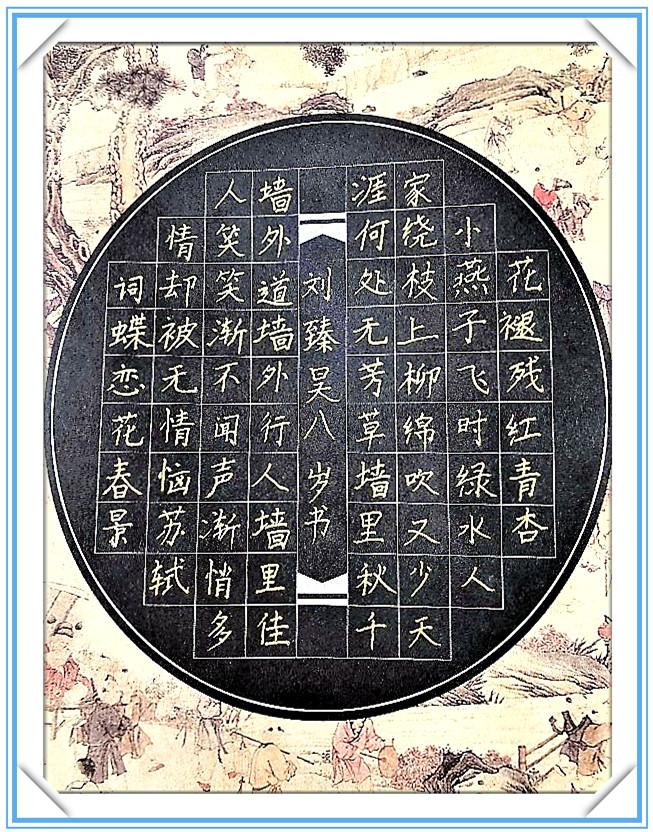 花褪残红青杏
小燕子飞时绿水人
家绕枝上柳绵吹又少天
涯何处无芳草墙里秋千
刘臻昊八岁书
墙外道墙外行人墙里佳
人笑笑渐不闻声渐悄多
情却被无情恼苏轼
词蝶恋花春景